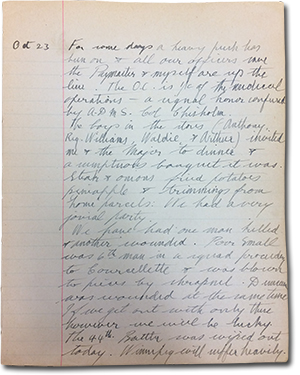 Oct 23 For some days a heavy push has
been on & all our officers save
the Paymaster & myself are up the
line. The O.C. is i/c of the medical
operations - a signal honor conferred
by A.D.M.S. Col Chisholm.
The boys in the stores (Anthony,
Reg. Williams, Waldie & Arthur) invited
me & the Major to dinner &
a sumptuous banquet it was.
Steak & onions fried potatoes
pineapple & trimmings from
home parcels. We had a very
jovial party.
We have had one man killed
& another wounded. Poor Small
was 6th man in a squad proceeding
to Courcellette & was blown
to pieces by shrapnel. Duncan
was wounded at the same time
If we get out with only this
however we will be lucky.
The 44th Battn was wiped out
today. Winnipeg will suffer heavily.